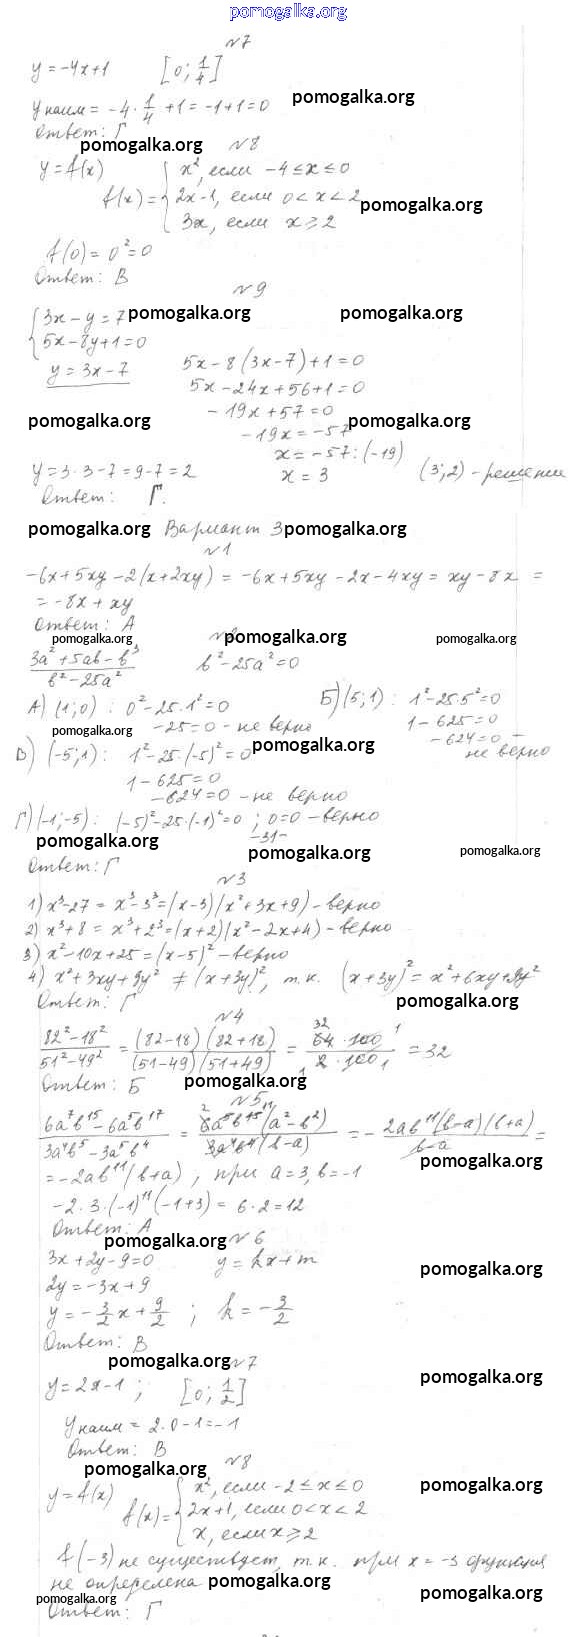 pomogalka.org
№7
y = -4x+1 [0; 1/4]
y наим = -4 · 1/4 + 1 = -1+1 = 0
pomogalka.org
Ответ: Г
pomogalka.org
№8
y = f(x) f(x) = { x², если -4 ≤ x ≤ 0
2x-1, если 0 < x < 2
3x, если x ≥ 2
pomogalka.org
f(0) = 0² = 0
Ответ: В
№9
{ 3x - y = 7
5x - 8y + 1 = 0
pomogalka.org pomogalka.org
y = 3x - 7
5x - 8(3x-7) + 1 = 0
5x - 24x + 56 + 1 = 0
-19x + 57 = 0
pomogalka.org pomogalka.org
-19x = -57
x = -57 : (-19)
x = 3
y = 3 · 3 - 7 = 9 - 7 = 2 (3; 2) - решение
Ответ: Г.
pomogalka.org Вариант 3 pomogalka.org
№1
-6x + 5xy - 2(x + 2xy) = -6x + 5xy - 2x - 4xy = xy - 8x =
= -8x + xy
Ответ: А
pomogalka.org pomogalka.org pomogalka.org
(3a² + 5ab - b³)/(b² - 25a²) b² - 25a² = 0
А) (1; 0) : 0² - 25·1² = 0
-25 = 0 - не верно
Б) (5; 1) : 1² - 25·5² = 0
1 - 625 = 0
-624 = 0 -
не верно
pomogalka.org pomogalka.org
В) (-5; 1) : 1² - 25·(-5)² = 0
1 - 625 = 0
-624 = 0 - не верно
Г) (-1; -5) : (-5)² - 25·(-1)² = 0 ; 0 = 0 - верно
-31-
pomogalka.org pomogalka.org pomogalka.org
Ответ: Г
№3
1) x³ - 27 = x³ - 3³ = (x-3)(x² + 3x + 9) - верно
2) x³ + 8 = x³ + 2³ = (x+2)(x² - 2x + 4) - верно
3) x² - 10x + 25 = (x-5)² - верно
4) x² + 3xy + 9y² ≠ (x+3y)², т.к. (x+3y)² = x² + 6xy + 9y²
Ответ: Г
pomogalka.org
№4
(82² - 18²)/(51² - 49²) = (82-18)(82+18)/(51-49)(51+49) = (64 · 100)/(2 · 100) = 32
Ответ: Б
pomogalka.org
№5
(6a⁷b¹⁵ - 6a⁵b¹⁷)/(3a⁴b⁵ - 3a⁵b⁴) = 6a⁵b¹⁵(a² - b²)/3a⁴b⁴(b-a) = - 2ab¹¹(b-a)(b+a)/(b-a) =
= -2ab¹¹(b+a), при a = 3, b = -1
pomogalka.org
-2 · 3 · (-1)¹¹(-1+3) = 6 · 2 = 12
Ответ: А
pomogalka.org
№6
3x + 2y - 9 = 0 y = kx + m
2y = -3x + 9
pomogalka.org
y = -3/2 x + 9/2 ; k = -3/2
Ответ: В
pomogalka.org
№7
y = 2x - 1 ; [0; 1/2]
pomogalka.org
y наим = 2 · 0 - 1 = -1
Ответ: В
pomogalka.org
№8
y = f(x) f(x) = { x², если -2 ≤ x ≤ 0
2x+1, если 0 < x < 2
x, если x ≥ 2
pomogalka.org
f(-3) не существует, т.к. при x = -3 функция
не определена
pomogalka.org
pomogalka.org
pomogalka.org
Ответ: Г